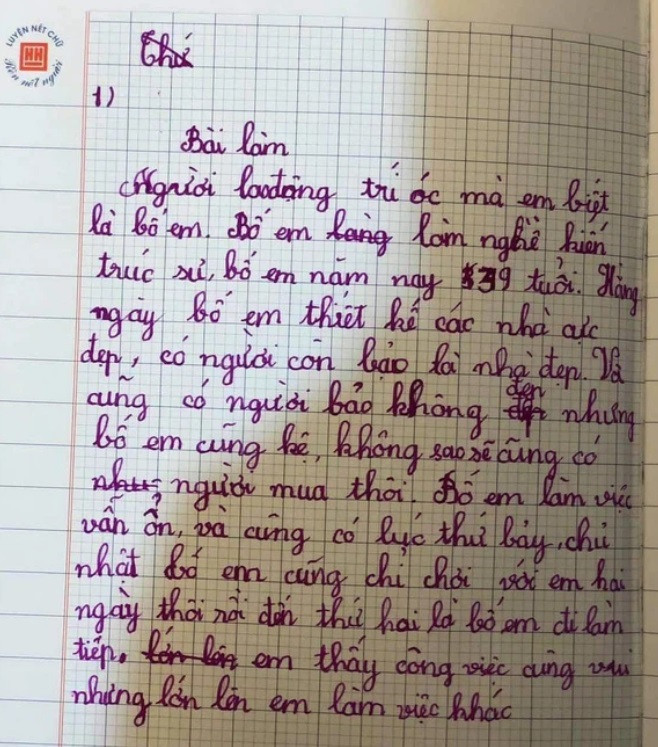 LUYỆN NÉT CHỮ
HH
Rèn nết người
Thứ
1)
Bài làm
Người laođộng trí óc mà em biết
là bố em. Bố em làng làm nghề kiến
trúc sư, bố em năm nay 39 tuổi. Hàng
ngày bố em thiết kế các nhà cực
đẹp, có người còn bảo là nhà đẹp. Và
cũng có người bảo không đẹp nhưng
bố em cũng kệ, không sao sẽ cũng có
người mua thôi. Bố em làm việc
vẫn ổn, và cũng có lực thứ bảy, chủ
nhật bố em cũng chỉ chơi với em hai
ngày thôi rồi đến thứ hai là bố em đi làm
tiếp. lớn lên em thấy công việc cũng vui
nhưng lớn lên em làm việc khác